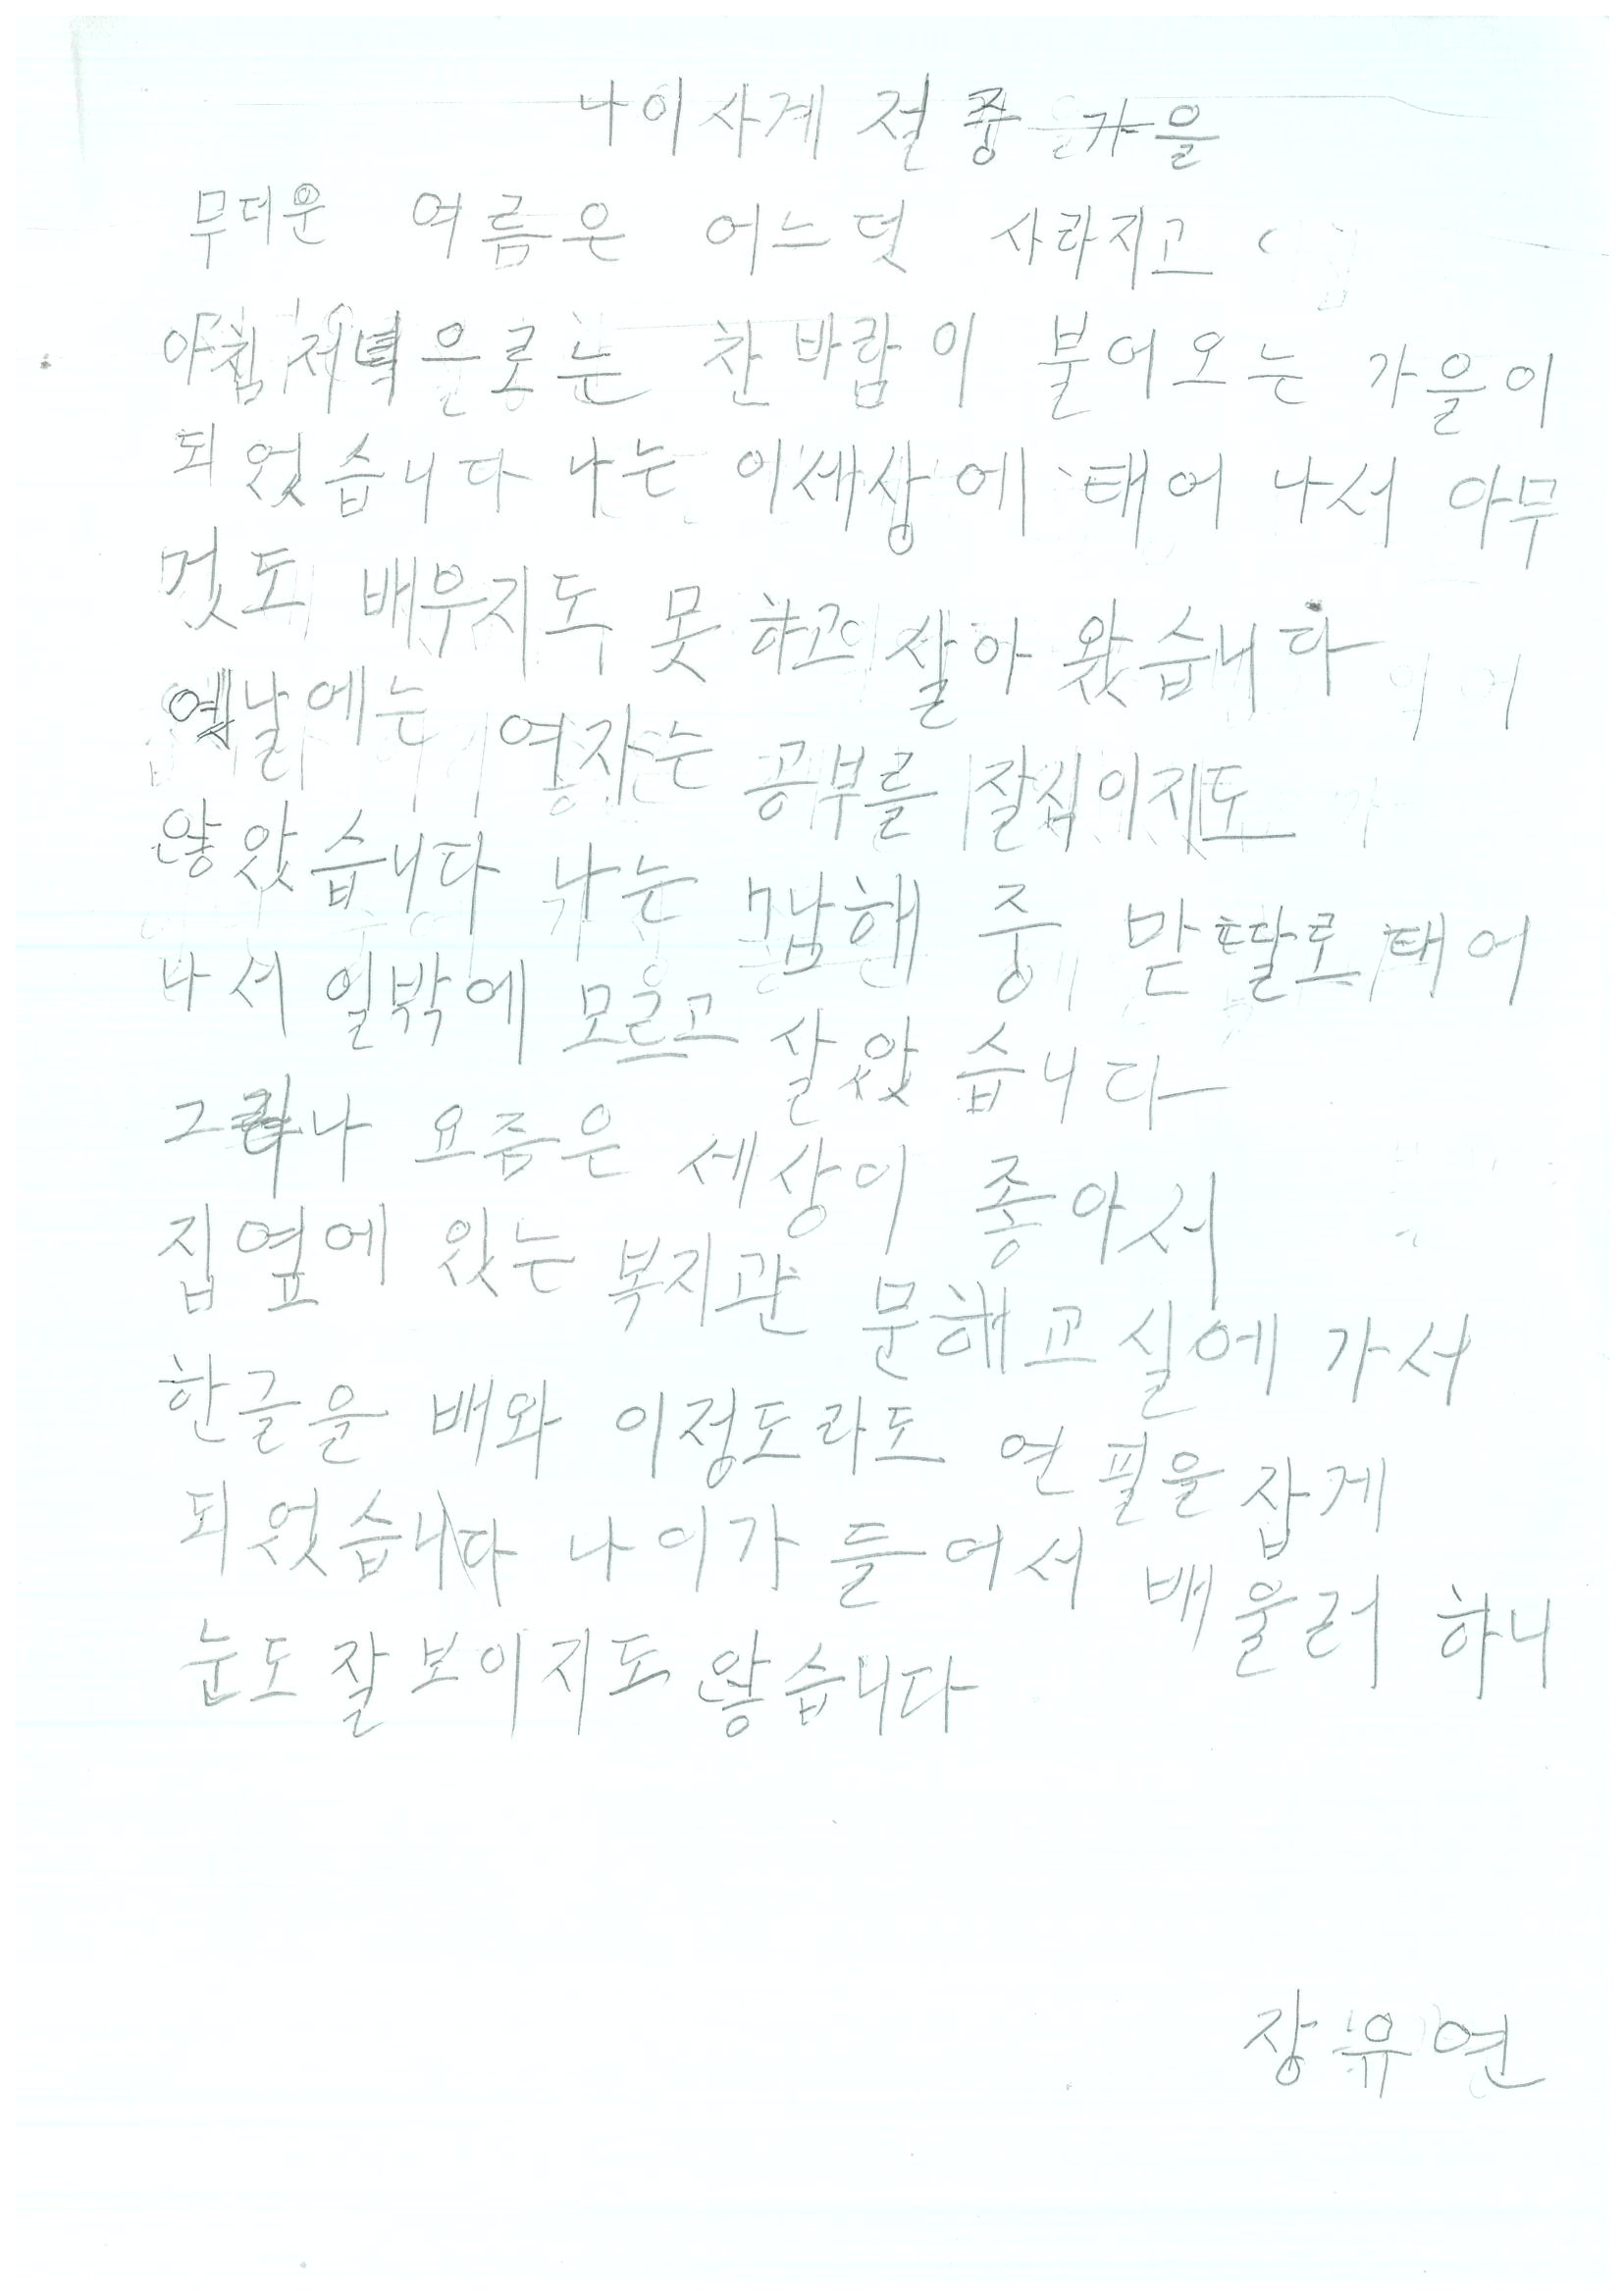 나이사계절중 가을
무더운 여름은 어느덧 사라지고
아침저녁으로는 찬바람이 불어오는 가을이
되었습니다 나는 이세상에 태어나서 아무
것도 배우지도 못하고 살아 왔습니다
옛날에는 여자는 공부를 잘식이지도
않았습니다 나는 7남핸 중 맏딸로 태어
나서 일밖에 모르고 살았습니다
그러나 요즘은 세상이 좋아서
집옆에 있는 복지관 문해교실에 가서
한글을 배와 이정도라도 연필을 잡게
되었습니다 나이가 들어서 배울러 하니
눈도 잘보이지도 않습니다
장유연